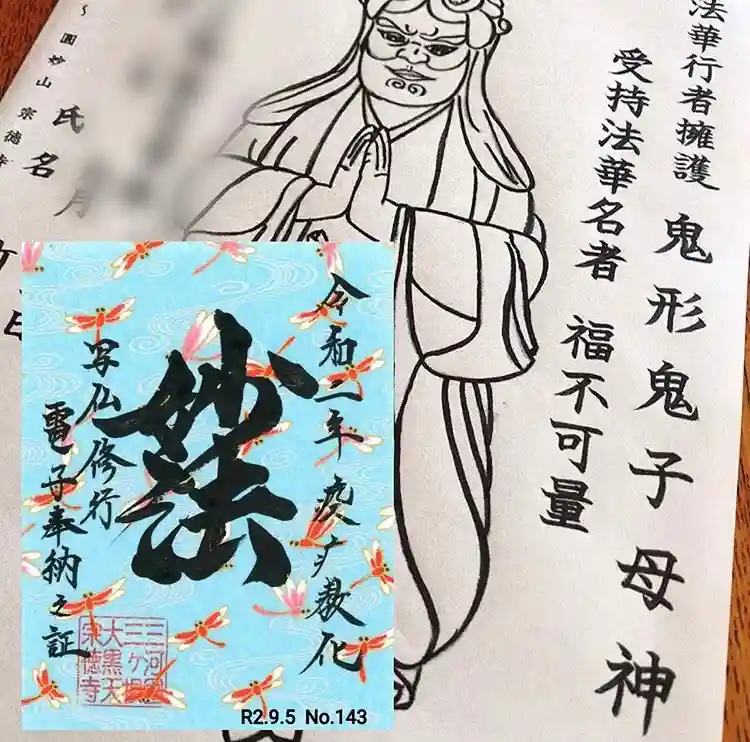 法華行者擁護
鬼形鬼子母神
受持法華名者
福不可量
圓妙山 宗徳寺
氏名
令和二年 疫病教化
妙法
写仏修行
電子奉納之証
三河国
三ヶ根
大黒天
宗徳寺
R2.9.5 No.143